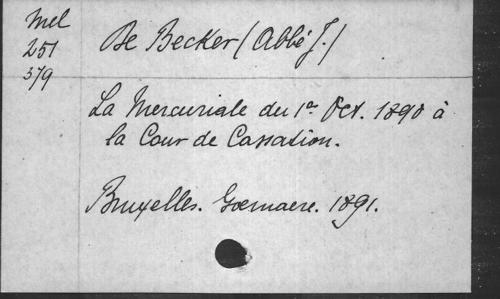 Mel
251
579
De Becker (Abbé J.)
La Mercuriale du 1er Oct. 1890 à
la Cour de Cassation.
Bruxelles. Goemaere. 1891.